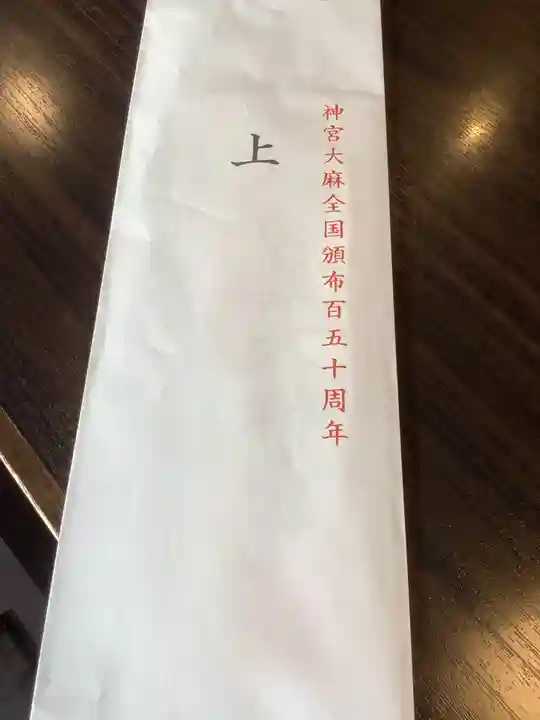 神宮大麻全国頒布百五十周年
上